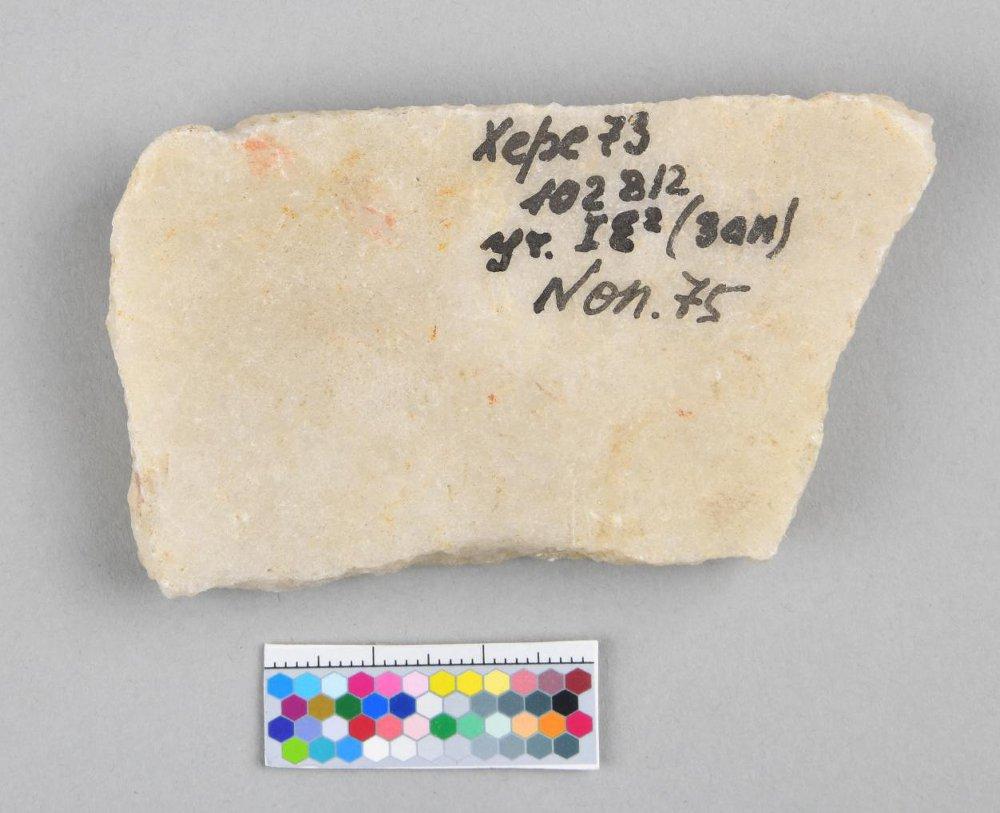 Херс 73
102 812
уч. IБ² (зап)
Поп. 75